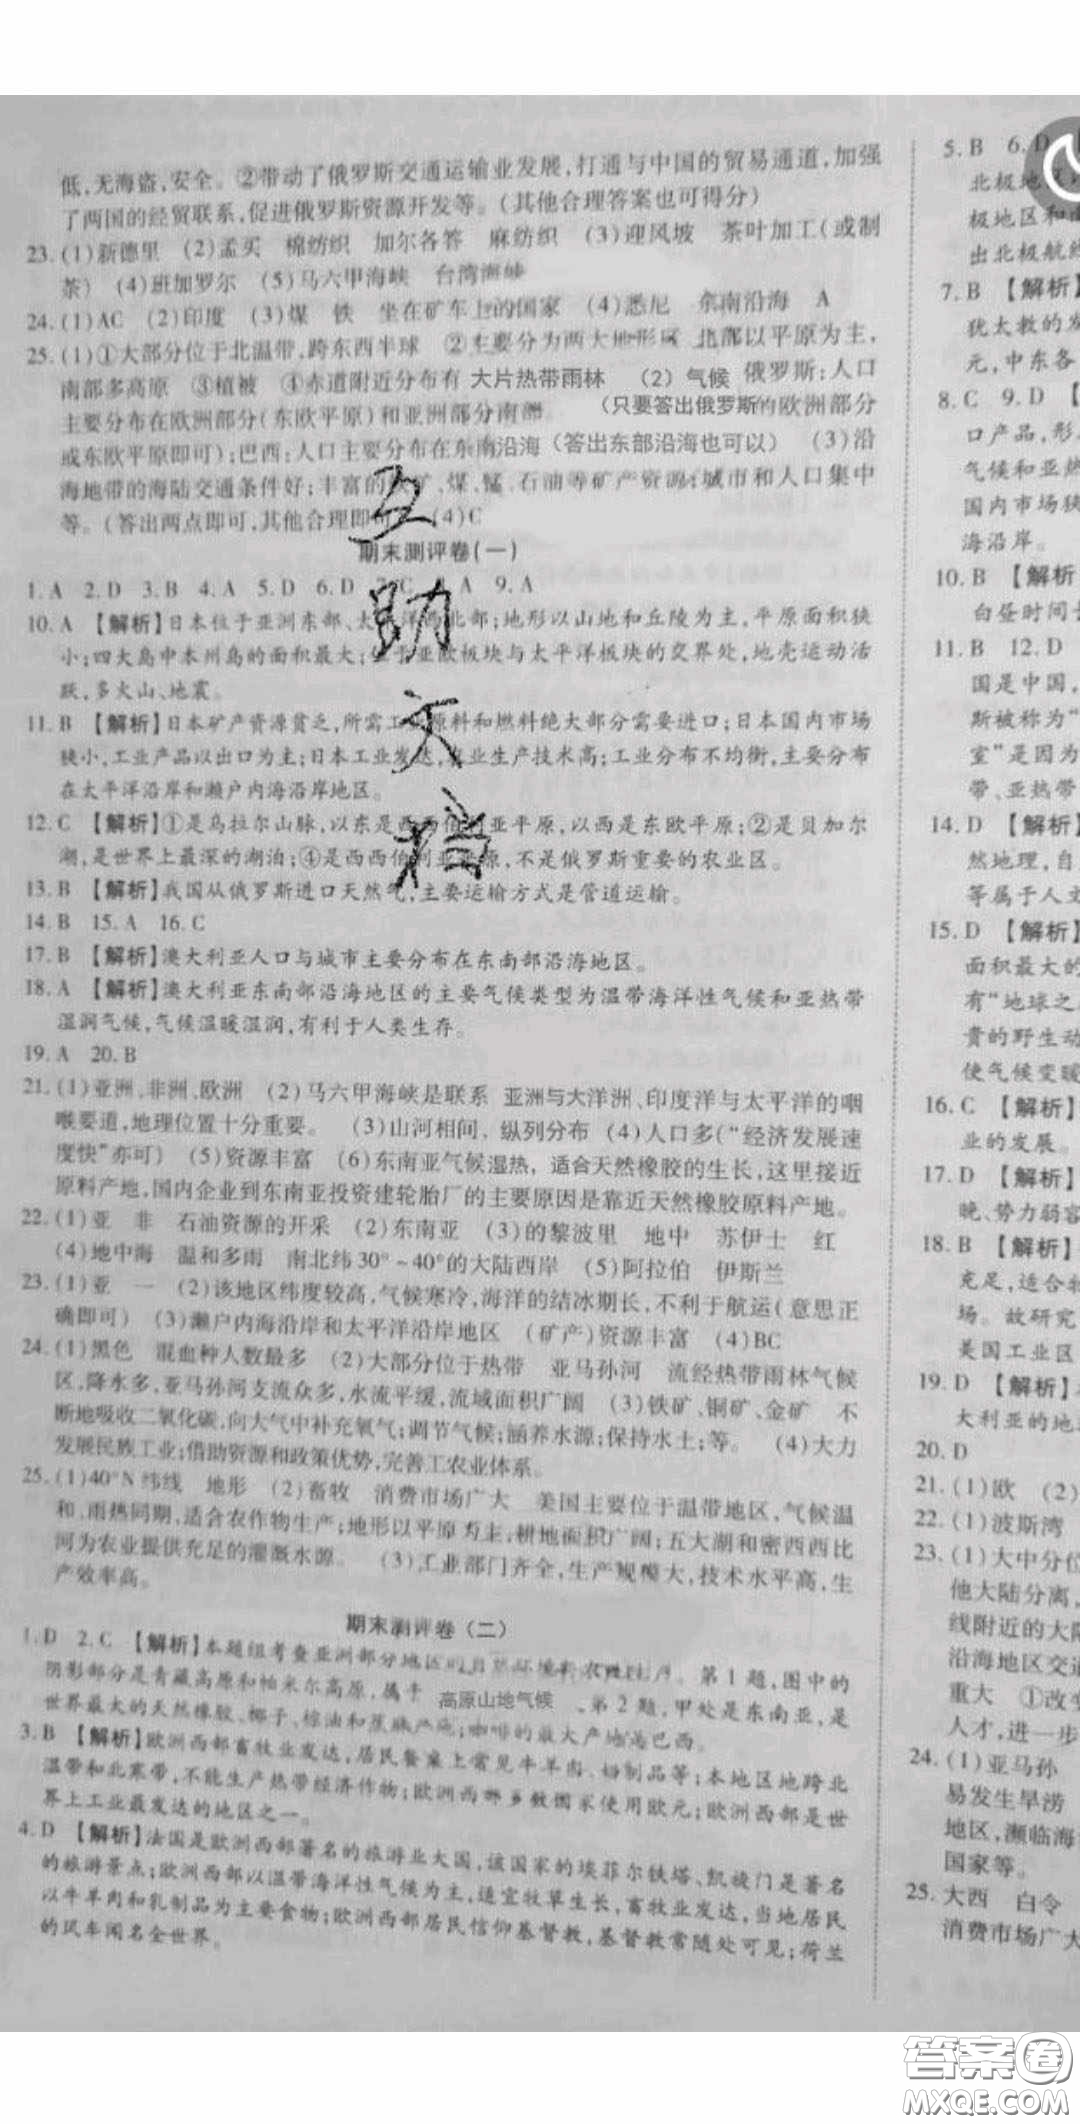 低,无海盗,安全。②带动了俄罗斯交通运输业发展,打通与中国的贸易通道,加强
了两国的经贸联系,促进俄罗斯资源开发等。(其他合理答案也可得分)
23. (1)新德里 (2)孟买 棉纺织 加尔各答 麻纺织 (3)迎风坡 茶叶加工(或制
茶) (4)班加罗尔 (5)马六甲海峡 台湾海峡
24. (1)AC (2)印度 (3)煤 铁 坐在矿车上的国家 (4)悉尼 东南沿海 A
25. (1)①大部分位于北温带,跨东西半球 ②主要分为两大地形区 北部以平原为主,
南部多高原 ③植被 ④赤道附近分布有 大片热带雨林 (2)气候 俄罗斯:人口
主要分布在欧洲部分(东欧平原)和亚洲部分南部 (只要答出俄罗斯的欧洲部分
或东欧平原即可);巴西:人口主要分布在东南沿海(答出东部沿海也可以) (3)沿
海地带的海陆交通条件好;丰富的 矿、煤、锰、石油等矿产资源;城市和人口集中
等。(答出两点即可,其他合理即可 (4)C
期末测评卷(一)
1. A 2. D 3. B 4. A 5. D 6. D 7. C A 9. A
10. A 【解析】日本位于亚洲东部、太 洋西北部;地形以山地和丘陵为主,平原面积狭
小;四大岛中本州岛的面积最大; 于亚欧板块与太平洋板块的交界处,地壳运动活
跃,多火山、地震。
11. B 【解析】日本矿产资源贫乏,所需工 原料和燃料绝大部分需要进口;日本国内市场
狭小,工业产品以出口为主;日本工业发达, 业生产技术高;工业分布不均衡,主要分布
在太平洋沿岸和濑户内海沿岸地区。
12. C 【解析】①是乌拉尔山脉,以东是西西伯利亚平原,以西是东欧平原;②是贝加尔
湖,是世界上最深的湖泊;④是西西伯利亚 原,不是俄罗斯重要的农业区。
13. B 【解析】我国从俄罗斯进口天然气,主要运输方式是管道运输。
14. B 15. A 16. C
17. B 【解析】澳大利亚人口与城市主要分布在东南部沿海地区。
18. A 【解析】澳大利亚东南部沿海地区的主要气候类型为温带海洋性气候和亚热带
湿润气候,气候温暖湿润,有利于人类生存。
19. A 20. B
21. (1)亚洲、非洲、欧洲 (2)马六甲海峡是联系 亚洲与大洋洲、印度洋与太平洋的咽
喉要道,地理位置十分重要。 (3)山河相间、纵列分布 (4)人口多(“经济发展速
度快”亦可) (5)资源丰富 (6)东南亚气候湿热,适合天然橡胶的生长,这里接近
原料产地,国内企业到东南亚投资建轮胎厂的主要原因是靠近天然橡胶原料产地。
22. (1)亚 非 石油资源的开采 (2)东南亚 (3)的黎波里 地中 苏伊士 红
(4)地中海 温和多雨 南北纬30°~40°的大陆西岸 (5)阿拉伯 伊斯兰
23. (1)亚 一 (2)该地区纬度较高,气候寒冷,海洋的结冰期长,不利于航运(意思正
确即可) (3)濑户内海沿岸和太平洋沿岸地区 (矿产)资源丰富 (4)BC
24. (1)黑色 混血种人数最多 (2)大部分位于热带 亚马孙河 流经热带雨林气候
区,降水多,亚马孙河支流众多,水流平缓,流域面积广阔 (3)铁矿、铜矿、金矿 不
断地吸收二氧化碳,向大气中补充氧气;调节气候;涵养水源;保持水土;等。 (4)大力
发展民族工业;借助资源和政策优势,完善工农业体系。
25. (1)40°N纬线 地形 (2)畜牧 消费市场广大 美国主要位于温带地区,气候温
和、雨热同期,适合农作物生产;地形以平原为主,耕地面积广阔;五大湖和密西西比
河为农业提供充足的灌溉水源。 (3)工业部门齐全,生产规模大,技术水平高,生
产效率高。
期末测评卷(二)
1. D 2. C 【解析】本题组考查亚洲部分地区的自然环境和农业生产。第1题,图中的
阴影部分是青藏高原和帕米尔高原,属于 高原山地气候 、第2题,甲处是东南亚,是
世界最大的天然橡胶、椰子、棕油和蕉麻产地;咖啡的最大产地是巴西。
3. B 【解析】欧洲西部畜牧业发达,居民餐桌上常见牛羊肉、奶制品等;本地区地跨北
温带和北寒带,不能生产热带经济作物;欧洲西部多数国家使用欧元;欧洲西部是世
界上工业最发达的地区之一。
4. D 【解析】法国是欧洲西部著名的旅游业大国,该国家的埃菲尔铁塔、凯旋门是著名
的旅游景点;欧洲西部以温带海洋性气候为主,适宜牧草生长,畜牧业发达,当地居民
以牛羊肉和乳制品为主要食物;欧洲西部居民信仰基督教,基督教常随处可见;荷兰
的风车闻名全世界。
5. B 6. D
北极地
极地区和
出北极航
7. B 【解析】
犹太教的发
元,中东各
8. C 9. D
口产品,形
气候和亚热
国内市场狭
海沿岸。
10. B 【解析
白昼时间
11. B 12. D
国是中国,
斯被称为“
室”是因为
带、亚热带
14. D 【解析
然地理,自
等属于人文
15. D 【解析
面积最大的
有“地球之
贵的野生动
使气候变暖
16. C 【解析】
业的发展。
17. D 【解析】
晚、势力弱
18. B 【解析】
充足,适合
场。故研究
美国工业区
19. D 【解析】
大利亚的地
20. D
21. (1)欧 (2)
22. (1)波斯湾
23. (1)大中分位
他大陆分离,
线附近的大陆
沿海地区交通
重大 ①改变
人才,进一步
24. (1)亚马孙
易发生旱涝
地区,濒临海
国家等。
25. 大西 白令
消费市场广大
答案卷
MXQE.COM